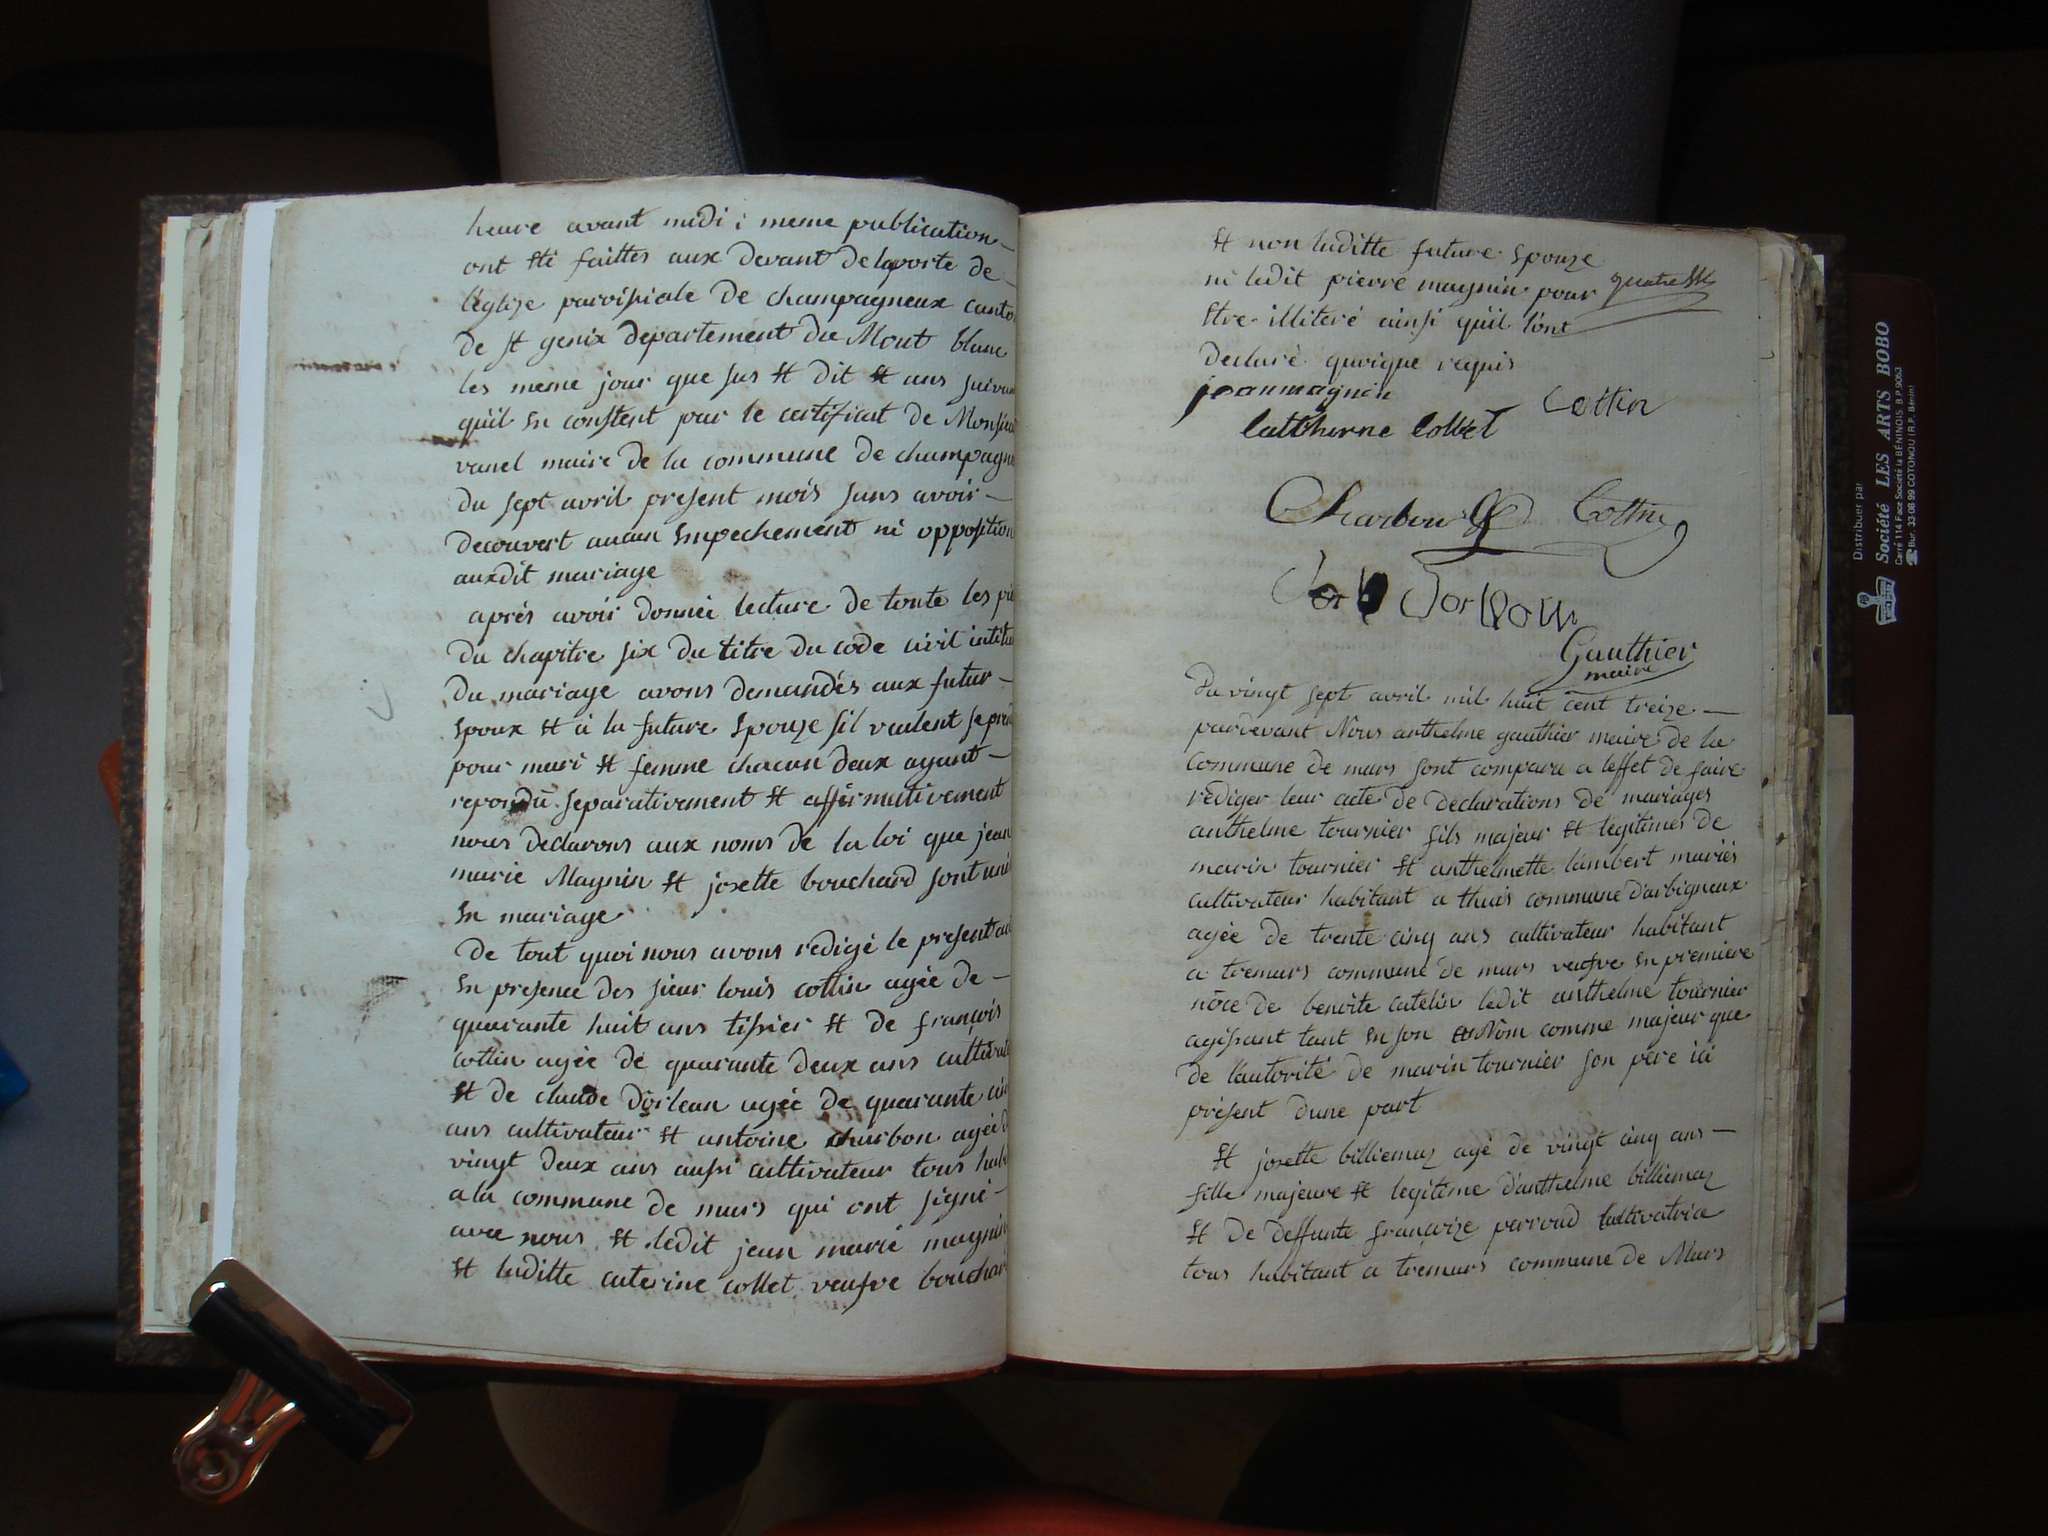 heure avant midi ; meme publication
ont été faittes aux devant de la porte de
l'église paroissiale de champagneux canto
de st genix departement du Mont blanc
les meme jour que sus et dit et ans suivan
quil en constent par le certificat de Monsieu
vanel maire de la commune de champagn
du sept avril present mois sans avoir
decouvert aucun empechement ni opposition
auxdit mariage
aprés avoir donnée lecture de toute les pi
du chapitre six du titre du code civil intitu
du mariage avons demandés aux futur
epoux et à la future epouze sil veulent se pren
pour mari et femme chacun deux ayant
repondu separativement et affirmativement
nous declarons aux noms de la loi que jean
marie Magnin et josette bouchard sont uni
en mariage
De tout quoi nous avons redigé le present act
en presence des sieur louis cottin agée de
quarante huit ans tissier et de françois
cottin agée de quarante deux ans cultivate
et de claude Dorlean agée de quarante cin
ans cultivateur et antoine charbon agée d
vingt deux ans aussi cultivateur tous habi
a la commune de murs qui ont signé
avec nous et ledit jean marie magnin
et laditte caterine collet veufve bouchar
et non laditte future epouze
ni ledit pierre magnin pour
etre illiteré ainsi quil lont
declaré quoique requis
jean magnin
Cottin
Cattherne Collet
Charbon
Cottin
Gauthier
maire
du vingt sept avril mil huit cent treize
pardevant Nous anthelme gauthier maire de la
Commune de murs sont comparu a leffet de faire
rédiger leur acte de declarations de mariages
anthelme tournier fils majeur et legitimes de
marin tournier et anthelmette lambert mariés
cultivateur habitant a thuis commune d'arbigneux
agée de trente cinq ans cultivateur habitant
a tremurs commune de murs veufve en premiere
noce de benoite catelin ledit anthelme tournier
agissant tant en son Nom comme majeur que
de l'autorité de marin tournier son pere ici
présent dune part
et josette billiemaz agé de vingt cinq ans
fille majeure et legitime d'anthelme billiemaz
et de deffunte françoize perroud Cultivatrice
tous habitant a tremurs commune de Murs
Distribuer par
Société LES ARTS BOBO
Carré 114 Face Société la BÉNINOIS B.P. 9053
Bur. 33-06 99 COTONOU (R.P. Bénin)